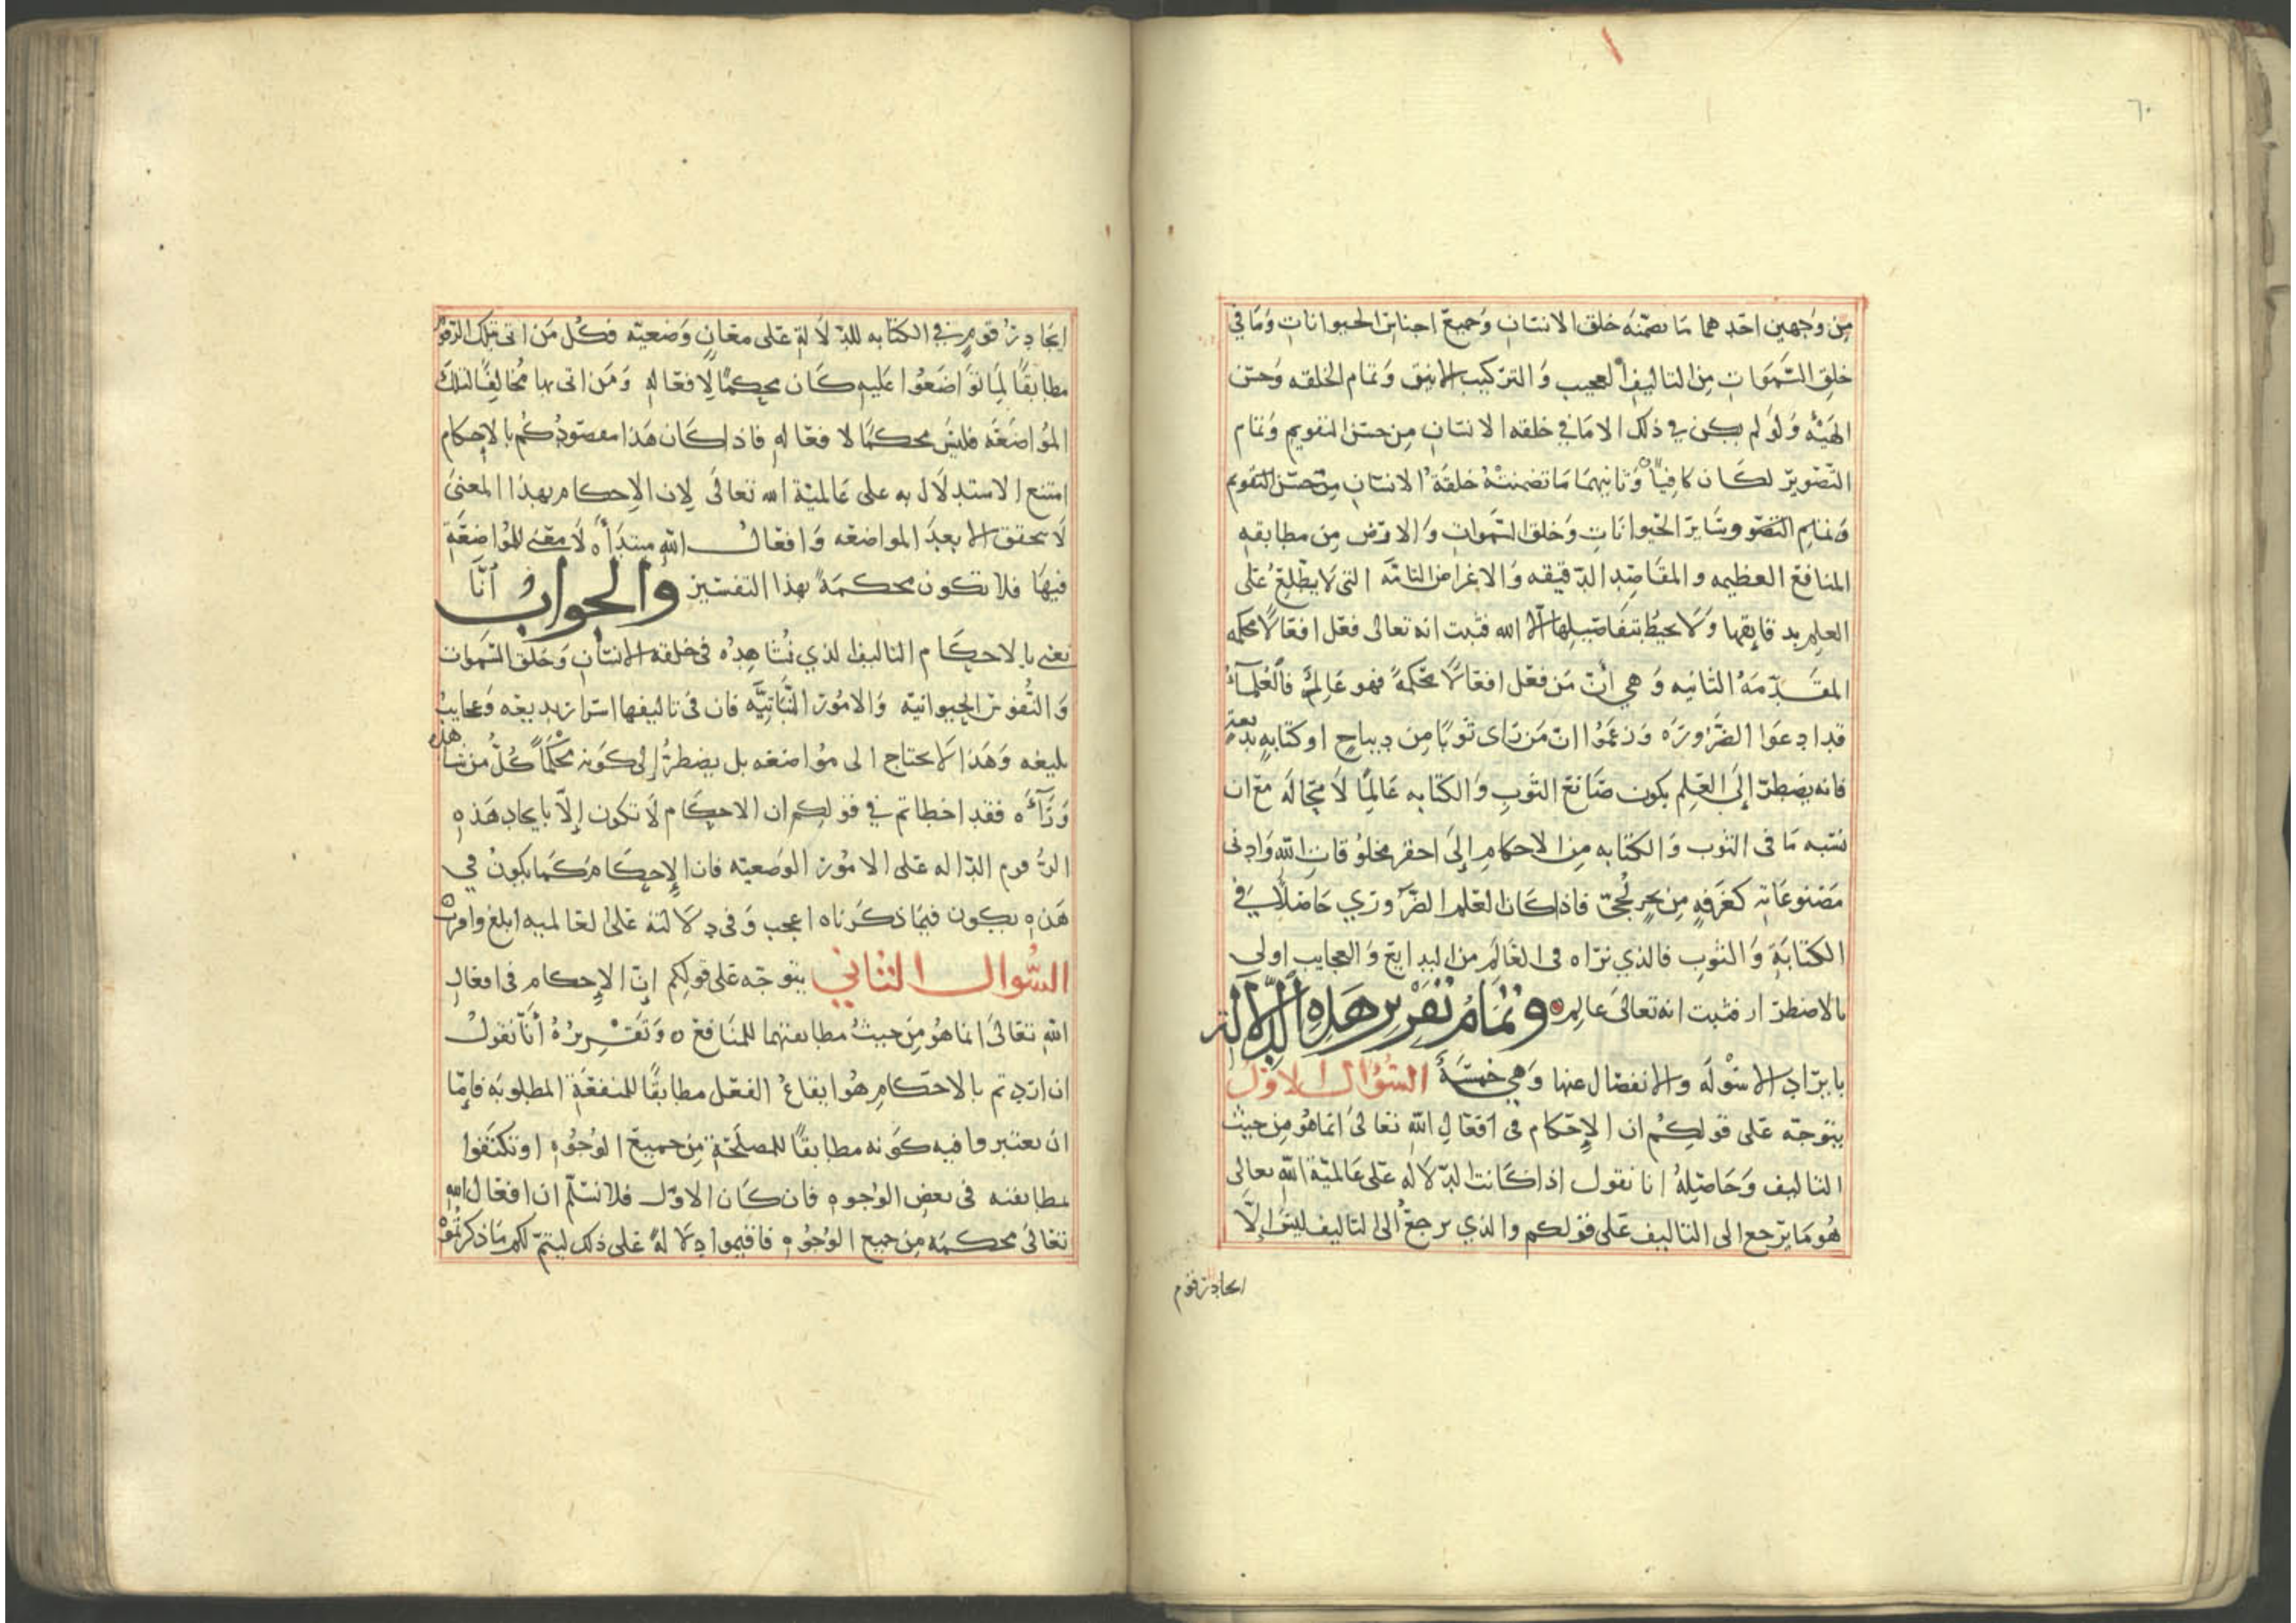 ٦٠
من وجهين احدهما ما تضمنه خلق الانسان وجميع اجناس الحيوانات وما في
خلق السموات من التاليف العجيب والتركيب الانيق وتمام الخلقه وحسن
الهيئه ولو لم يكن في ذلك الا ما في خلقه الانسان من حسن التقويم وتمام
التصوير لكان كافيا وثانيهما ما تضمنته خلقة الانسان من حسن التقويم
وتمام التصو وساير الحيوانات وخلق السموات والارض من مطابقه
المنافع العظيمه والمقاصد الدقيقه والاغراض التامه التى لا يطلع على
العلم بدقايقها ولا يحيط بتفاصيلها الا الله فثبت انه تعالى فعل افعالا محكمه
المقدمه الثانيه وهي أن من فعل افعالا محكمة فهو عالم فالعلماء
قد ادعوا الضروره وزعموا ان من راى ثوبا من ديباج او كتابه بديعه
فانه يضطر إلى العلم بكون صانع الثوب والكتابه عالما لا محاله مع ان
نسبه ما فى الثوب والكتابه من الاحكام إلى احقر مخلوقات الله وادنى
مصنوعاته كغرفه من بحر لجي فاذا كان العلم الضروري حاصلا في
الكتابة والثوب فالذي نراه فى العالم من البدايع والعجايب اولى
بالاضطرار فثبت انه تعالى عالم وتمام تقرير هذه الدلالة
بايراد الاسوله والانفصال عنها وهي خمسة السؤال الاول
يتوجه على قولكم ان الإحكام فى افعال الله تعالى انما هو من حيث
التاليف وحاصله انا نقول اذا كانت الدلاله على عالمية الله تعالى
هو ما يرجع الى التاليف على قولكم والذي يرجع الى التاليف ليس إلا
ايجاد رقوم
ايجاد رقوم في الكتابه للدلالة على معان وضعيه فكل من اتى بتلك الرقوم
مطابقا لما تواضعوا عليه كان محكما لافعاله ومن اتى بها مخالفا لتلك
المواضعه فليس محكما لافعاله فاذا كان هذا مقصودكم بالإحكام
امتنع الاستدلال به على عالمية الله تعالى لان الإحكام بهذا المعنى
لا يتحقق الا بعد المواضعه وافعال الله مبتدأه لا معنى للمواضعة
فيها فلا تكون محكمة بهذا التفسير والجواب أنا
نعنى بالاحكام التاليف الذي نشاهده فى خلقه الانسان وخلق السموات
والنفوس الحيوانيه والامور النباتيه فان فى تاليفها اسرار بديعه وعجايب
بليغه وهذا لا يحتاج الى مواضعه بل يضطر إلى كونه محكما كل من شاهده
وراءه فقد اخطاتم في قولكم ان الاحكام لا تكون إلا بايجاد هذه
الرقوم الداله على الامور الوضعيه فان الإحكام كما يكون في
هذه يكون فيما ذكرناه اعجب وفى دلالته على العالميه ابلغ واقرب
السؤال الثاني يتوجه على قولكم إن الإحكام فى افعال
الله تعالى انما هو من حيث مطابقتها للمنافع وتقريره أنا نقول
ان اردتم بالاحكام هو ايقاع الفعل مطابقا للمنفعة المطلوبه فاما
ان يعتبروا فيه كونه مطابقا للمصلحة من جميع الوجوه او تكتفوا
بمطابقته فى بعض الوجوه فان كان الاول فلا نسلم ان افعال الله
تعالى محكمه من جميع الوجوه فاقيموا دلالة على ذلك ليتم لكم ما ذكرتموه